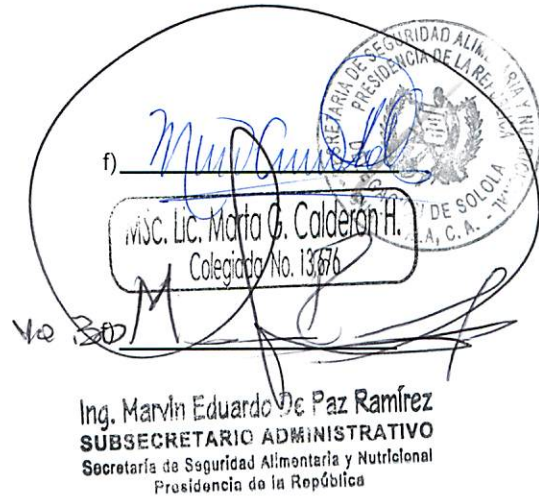 SECRETARIA DE SEGURIDAD ALIMENTARIA Y NUTRICIONAL
PRESIDENCIA DE LA
DE SOLOLA
A, C. A. -
f)
MSc. Lic. Marta G. Calderón H.
Colegiada No. 13,676
Vo Bo
Ing. Marvin Eduardo De Paz Ramírez
SUBSECRETARIO ADMINISTRATIVO
Secretaría de Seguridad Alimentaria y Nutricional
Presidencia de la República